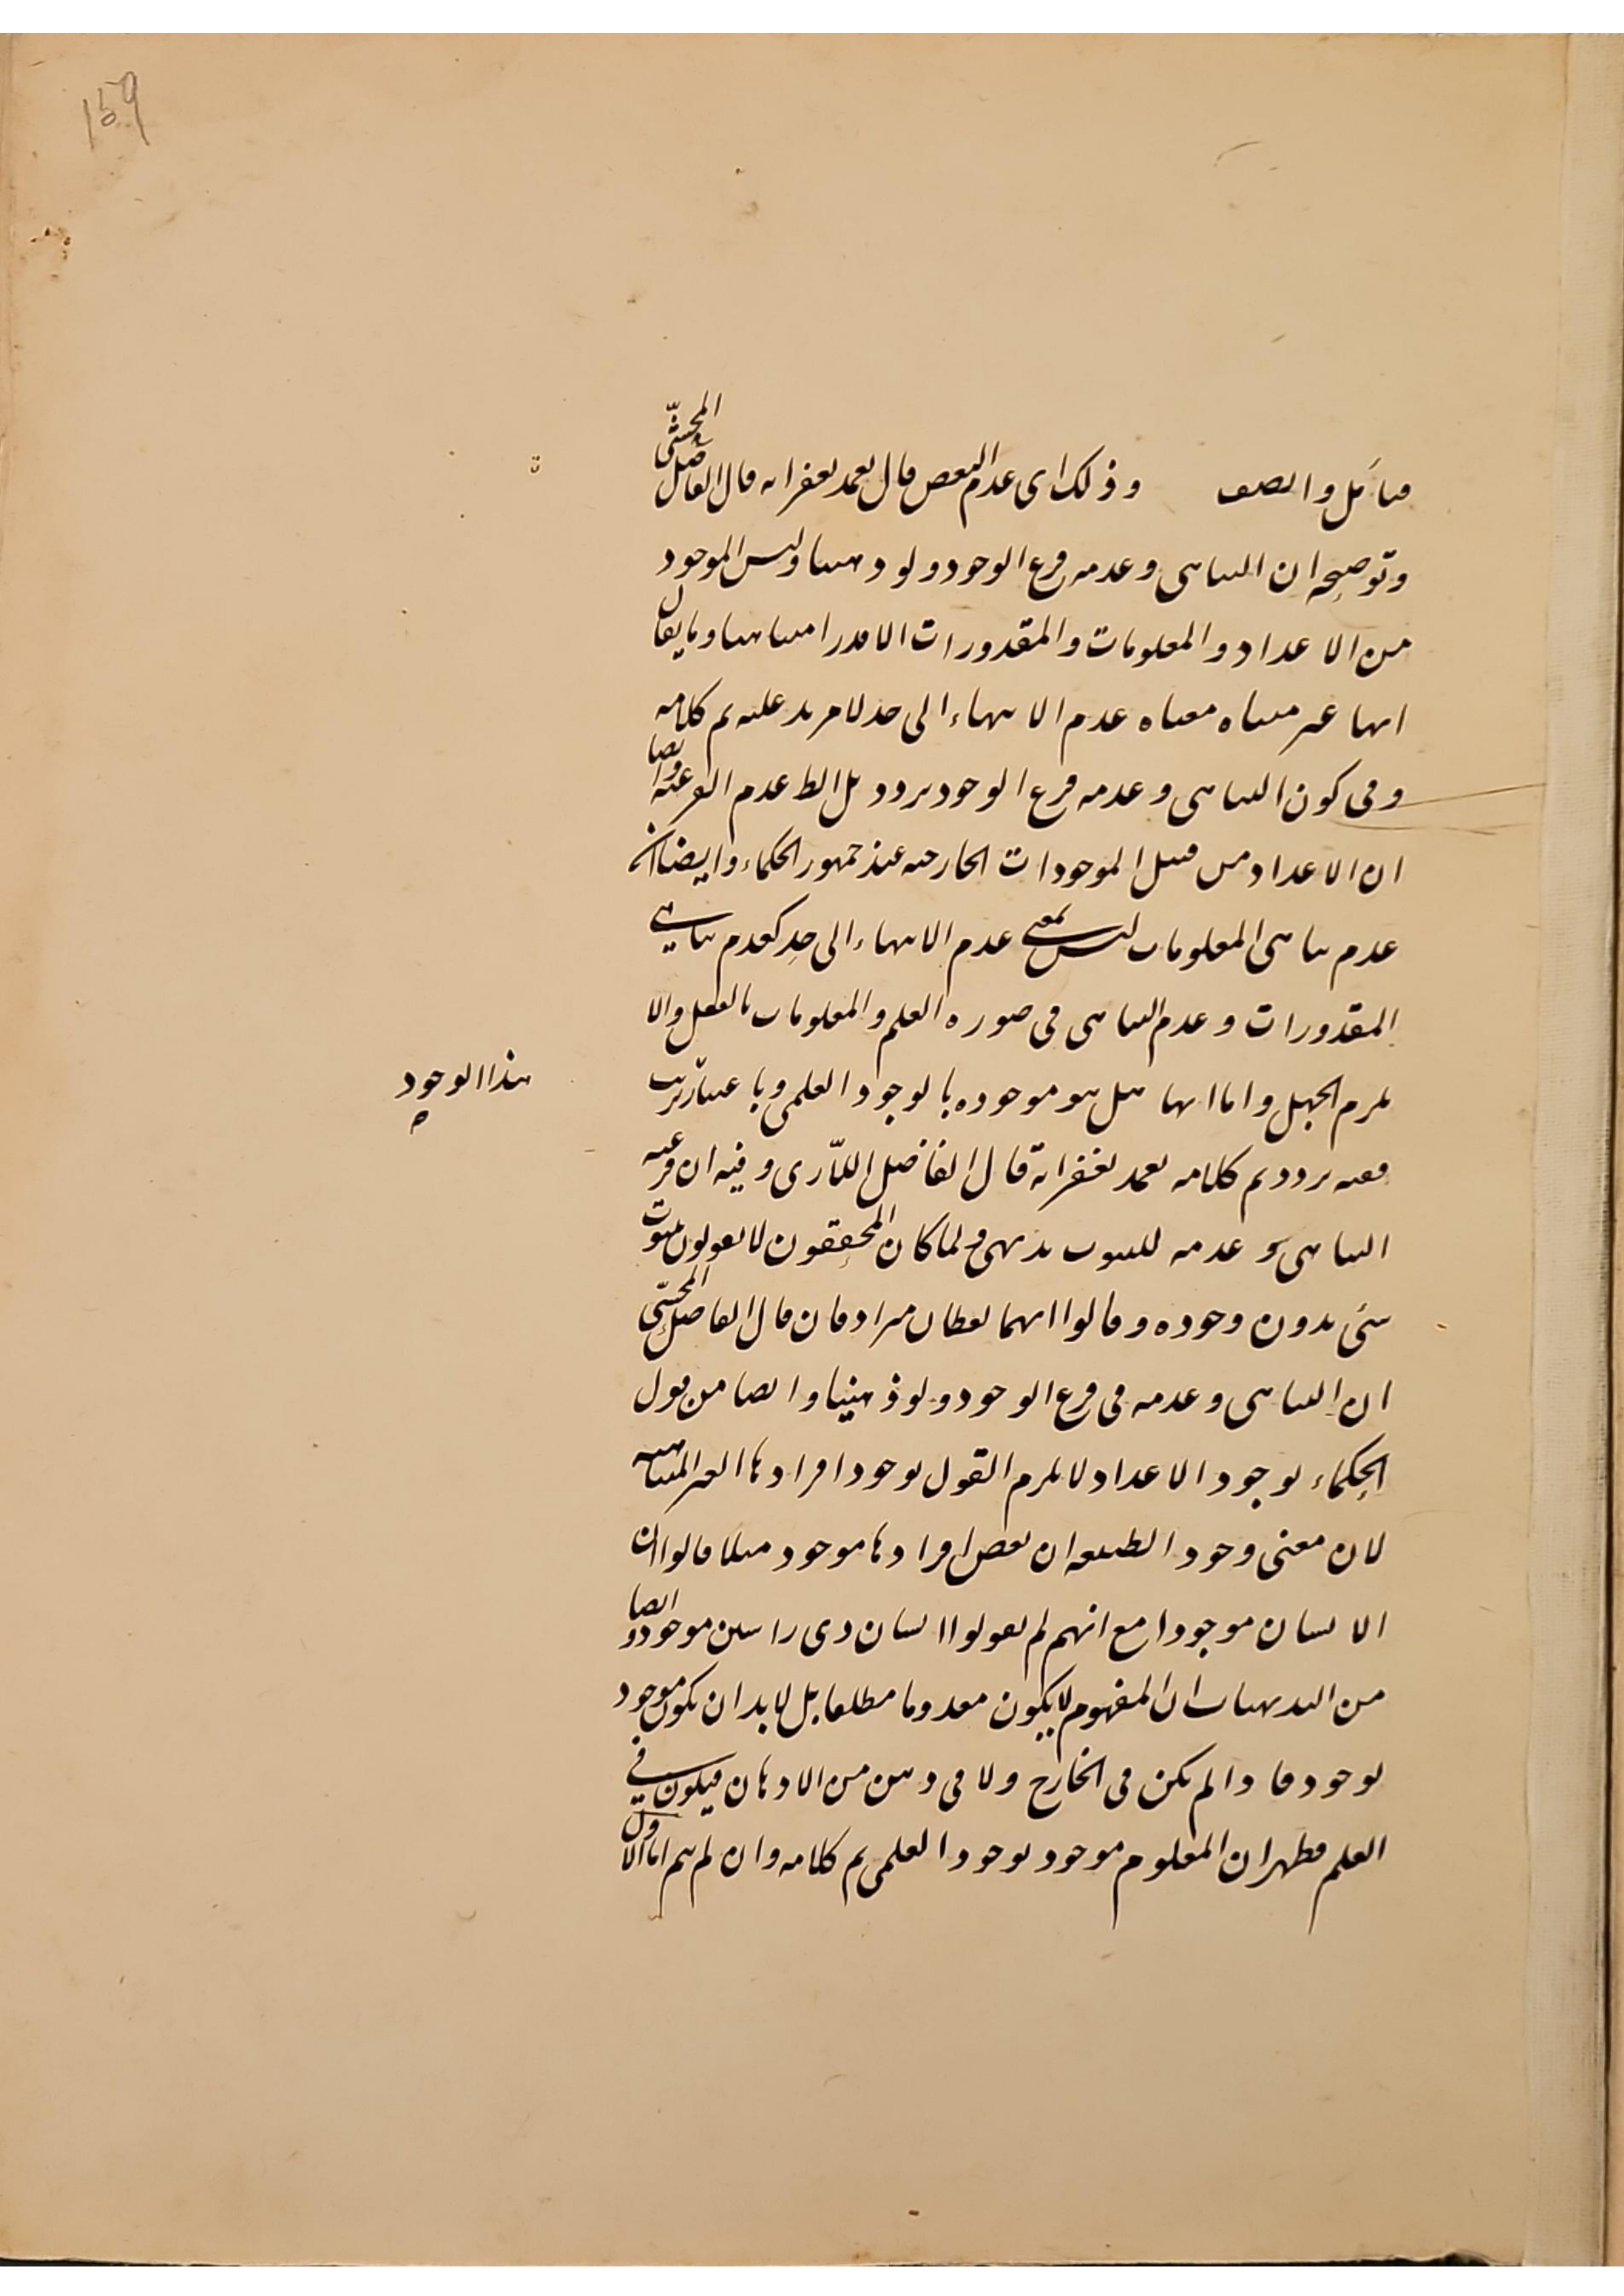 159
فتأمل وانصف وذلك اى عدم النقض قال تغمد بغفرانه قال الفاضل المحشّى
وتوضيحه ان التناهى وعدمه فرع الوجود ولو ذهنيا وليس الموجود
من الاعداد والمعلومات والمقدورات الا قدرا متناهيا وما يقال
انها غير متناه معناه عدم الانتهاء الى حد لا مزيد عليه تم كلامه
وفى كون التناهى وعدمه فرع الوجود تردد بل الظ عدم الفرعية وايضا
ان الاعداد من قبيل الموجودات الخارجية عند جمهور الحكماء وايضا ان
عدم تناهى المعلومات ليس بمعنى عدم الانتهاء الى حد كعدم تناهى
المقدورات وعدم التناهى فى صورة العلم والمعلومات بالفعل والا
يلزم الجهل واما انها هل هو موجوده بالوجود العلمى وباعتبار ترتب
هذا الوجود
ففيه تردد تم كلامه تغمد بغفرانه قال الفاضل اللّارى وفيه ان فرعية
التناهى وعدمه للثبوت بديهى ولما كان المحققون لا يقولون بثبوت
شئ بدون وجوده وقالوا انهما لفظان مترادفان قال الفاضل المحشّى
ان التناهى وعدمه فى فرع الوجود ولو ذهنيا وايضا من قول
الحكماء بوجود الاعداد لا يلزم القول بوجود افرادها الغير المتناهية
لان معنى وجود الطبيعه ان بعض افرادها موجود مثلا قالوا ان
الانسان موجودا مع انهم لم يقولوا انسان ذى راسين موجود وايضا
من البديهيات ان المفهوم لا يكون معدوما مطلقا بل لا بد ان يكون موجود
بوجود ما واذا لم يكن فى الخارج ولا فى ذهن من الاذهان فيكون فى
العلم فظهر ان المعلوم موجود بوجود العلمى تم كلامه وان لم يتم اما الاول